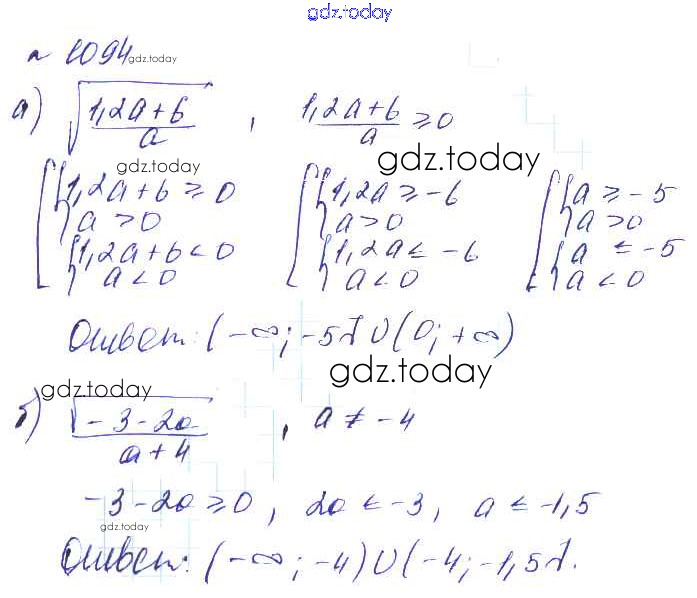 gdz.today
№ 1094 gdz.today
а) √((1,2a+6)/a) , (1,2a+6)/a ≥ 0
gdz.today gdz.today
1,2a+6 ≥ 0 1,2a ≥ -6 a ≥ -5
a > 0 a > 0 a > 0
1,2a+6 < 0 1,2a ≤ -6 a ≤ -5
a < 0 a < 0 a < 0
Ответ: (-∞; -5] ∪ (0; +∞)
gdz.today gdz.today
б) √(-3-2a)/(a+4) , a ≠ -4
-3-2a ≥ 0, 2a ≤ -3, a ≤ -1,5
gdz.today
Ответ: (-∞; -4) ∪ (-4; -1,5].